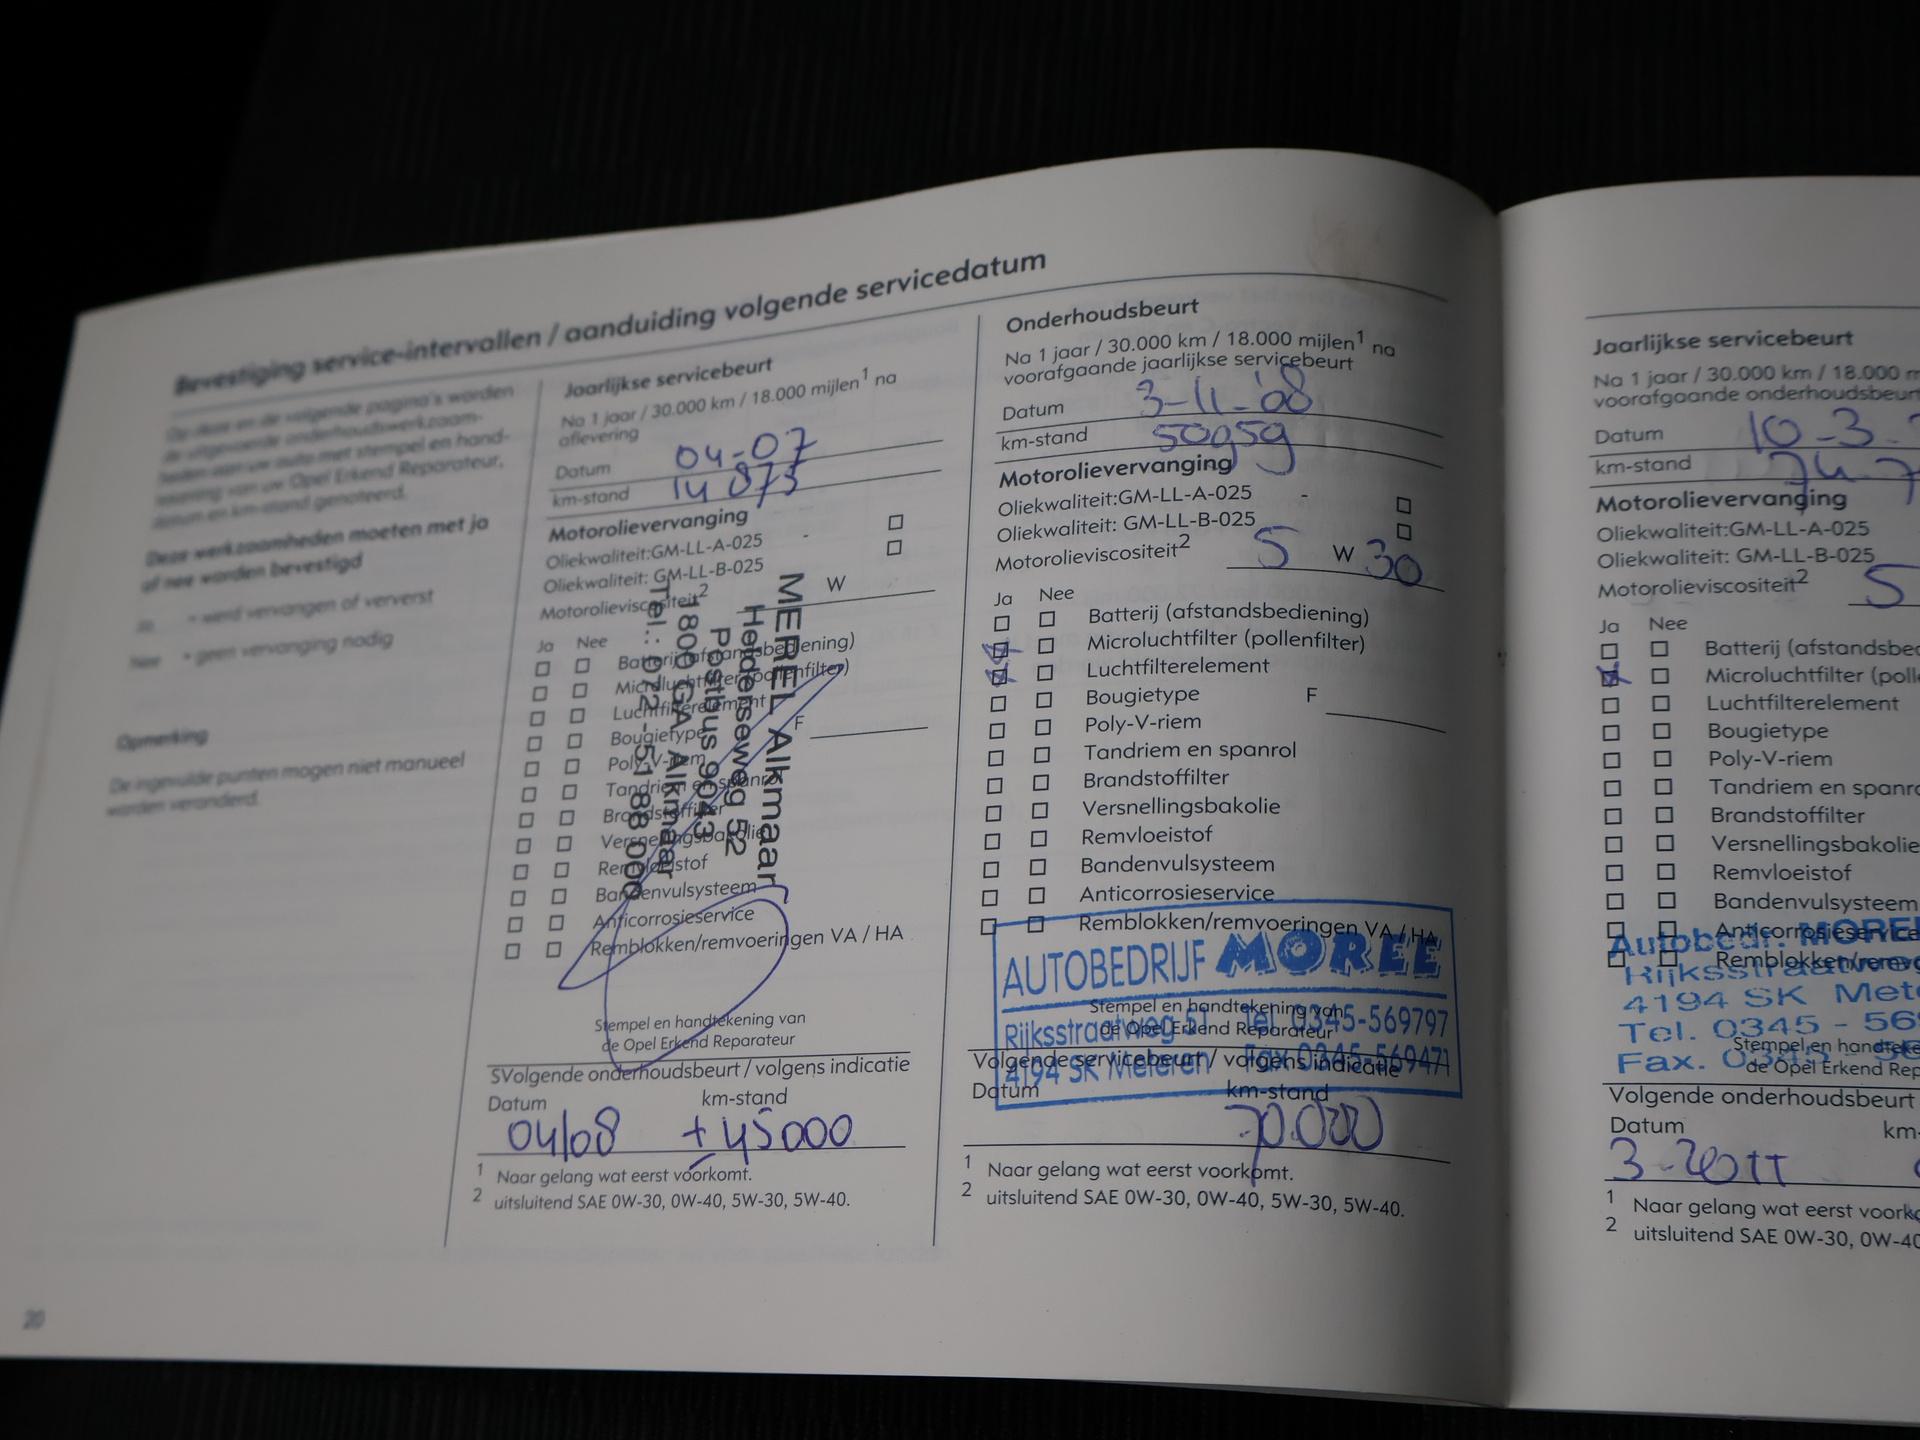 Bevestiging service-intervallen / aanduiding volgende servicedatum
Op deze en de volgende pagina's worden
de uitgevoerde onderhoudswerkzaam-
heden aan uw auto met stempel en hand-
tekening van uw Opel Erkend Reparateur,
datum en km-stand genoteerd.
Deze werkzaamheden moeten met ja
of nee worden bevestigd
Ja = werd vervangen of ververst
Nee = geen vervanging nodig
Opmerking
De ingevulde punten mogen niet manueel
worden veranderd.
20
Jaarlijkse servicebeurt
Na 1 jaar / 30.000 km / 18.000 mijlen1 na
aflevering
Datum 04-07
km-stand 14 873
Motorolievervanging
Oliekwaliteit:GM-LL-A-025 -
Oliekwaliteit: GM-LL-B-025
Motorolieviscositeit2 W
Ja Nee
Batterij (afstandsbediening)
Microluchtfilter (pollenfilter)
Luchtfilterelement
Bougietype F
Poly-V-riem
Tandriem en spanrol
Brandstoffilter
Versnellingsbakolie
Remvloeistof
Bandenvulsysteem
Anticorrosieservice
Remblokken/remvoeringen VA / HA
MEREL Alkmaar
Helderseweg 52
Postbus 9043
1800 GA Alkmaar
Tel.: 072 - 51 88 000
Stempel en handtekening van
de Opel Erkend Reparateur
SVolgende onderhoudsbeurt / volgens indicatie
Datum km-stand
04/08 ± 45000
1 Naar gelang wat eerst voorkomt.
2 uitsluitend SAE 0W-30, 0W-40, 5W-30, 5W-40.
Onderhoudsbeurt
Na 1 jaar / 30.000 km / 18.000 mijlen1 na
voorafgaande jaarlijkse servicebeurt
Datum 3-11-'08
km-stand 50959
Motorolievervanging
Oliekwaliteit:GM-LL-A-025 -
Oliekwaliteit: GM-LL-B-025
Motorolieviscositeit2 5 W 30
Ja Nee
Batterij (afstandsbediening)
Microluchtfilter (pollenfilter)
Luchtfilterelement
Bougietype F
Poly-V-riem
Tandriem en spanrol
Brandstoffilter
Versnellingsbakolie
Remvloeistof
Bandenvulsysteem
Anticorrosieservice
Remblokken/remvoeringen VA / HA
AUTOBEDRIJF MOREE
Rijksstraatweg 51 Tel. 0345-569797
4194 SK Meteren Fax 0345-569471
Stempel en handtekening van
de Opel Erkend Reparateur
Volgende servicebeurt / volgens indicatie
Datum km-stand
70.000
1 Naar gelang wat eerst voorkomt.
2 uitsluitend SAE 0W-30, 0W-40, 5W-30, 5W-40.
Jaarlijkse servicebeurt
Na 1 jaar / 30.000 km / 18.000 m
voorafgaande onderhoudsbeurt
Datum 10-3-
km-stand 74.7
Motorolievervanging
Oliekwaliteit:GM-LL-A-025
Oliekwaliteit: GM-LL-B-025
Motorolieviscositeit2 5
Ja Nee
Batterij (afstandsbed
Microluchtfilter (polle
Luchtfilterelement
Bougietype
Poly-V-riem
Tandriem en spanro
Brandstoffilter
Versnellingsbakolie
Remvloeistof
Bandenvulsysteem
Anticorrosieservice
Remblokken/remvo
Autobedr. MOREE
Rijksstraatweg
4194 SK Mete
Tel. 0345 - 569
Fax. 0345 - 56
Stempel en handteke
de Opel Erkend Rep
Volgende onderhoudsbeurt
Datum km-
3-2011
1 Naar gelang wat eerst voorko
2 uitsluitend SAE 0W-30, 0W-40